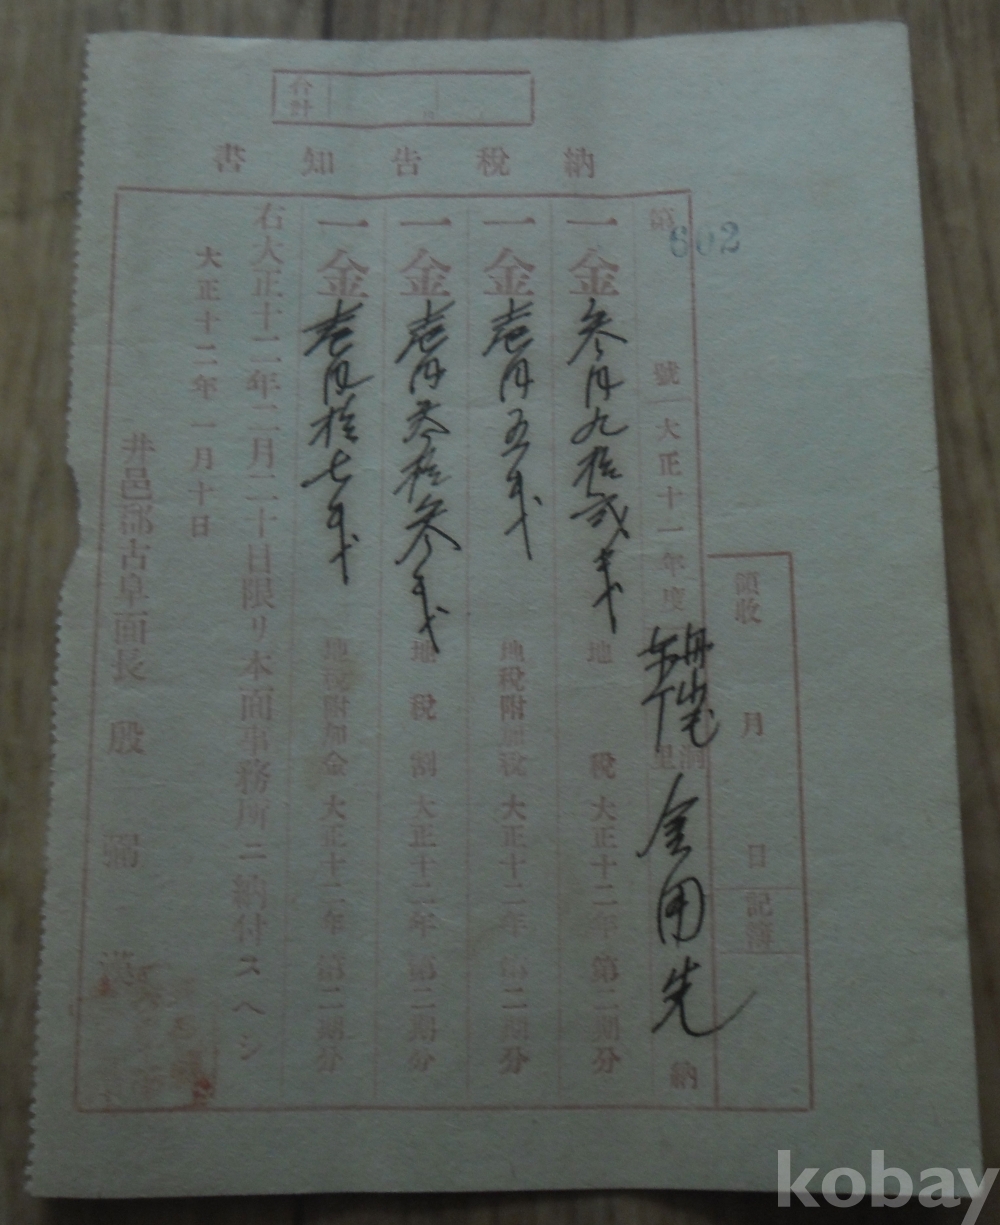 合計
納稅告知書
第602號 大正十一年度 洞里 金用先 納
一金參円九拾弐戋 地稅 大正十二年第二期分
一金壱円五戋 地稅附加稅 大正十二年第二期分
一金壱円參拾參戋 地稅割 大正十二年第二期分
一金壱円拾七戋 地稅附加金 大正十二年第二期分
右大正十二年二月二十日限リ本面事務所ニ納付スヘシ
大正十二年一月十日
井邑郡古阜面長 殷 漢
領收 月 日 記簿
kobay